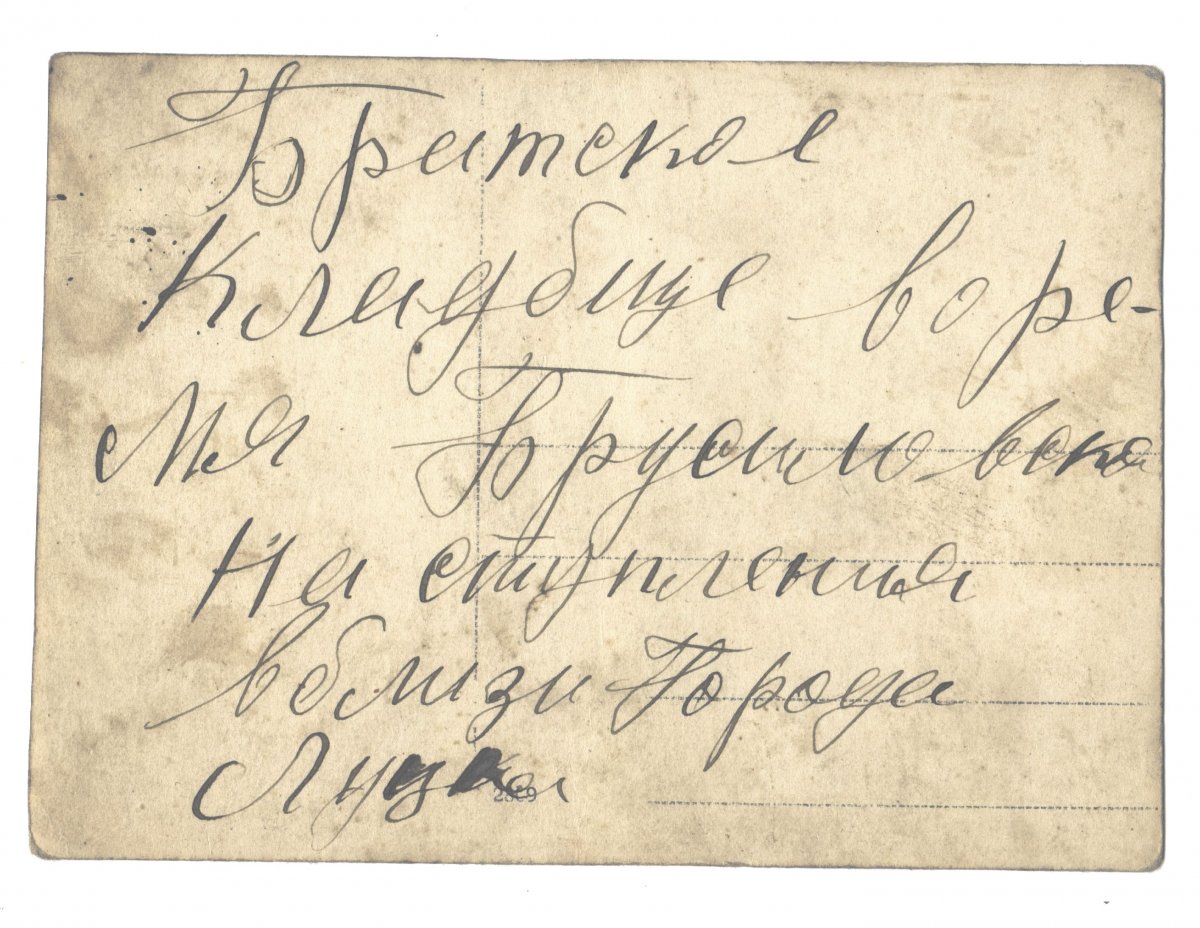 Братское
Кладбище воре-
мя Брусиловско
На ступления
вблизи Города
Луцка
2869